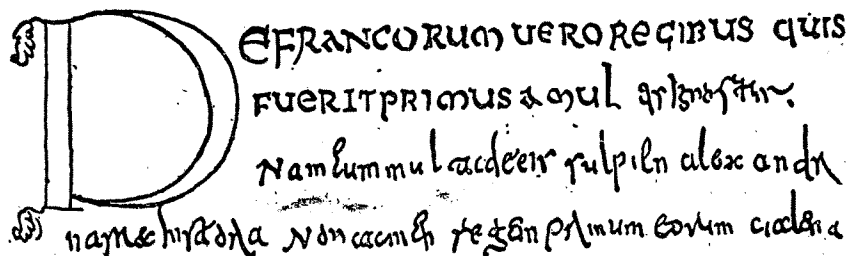 DEFRANCORUM UERO REGIBUS QUIS
FUERIT PRIMUS A MUL tisignoratur.
Nam cum multa de eis sulpici alexandri
narret historia Non tamen regem primum eorum